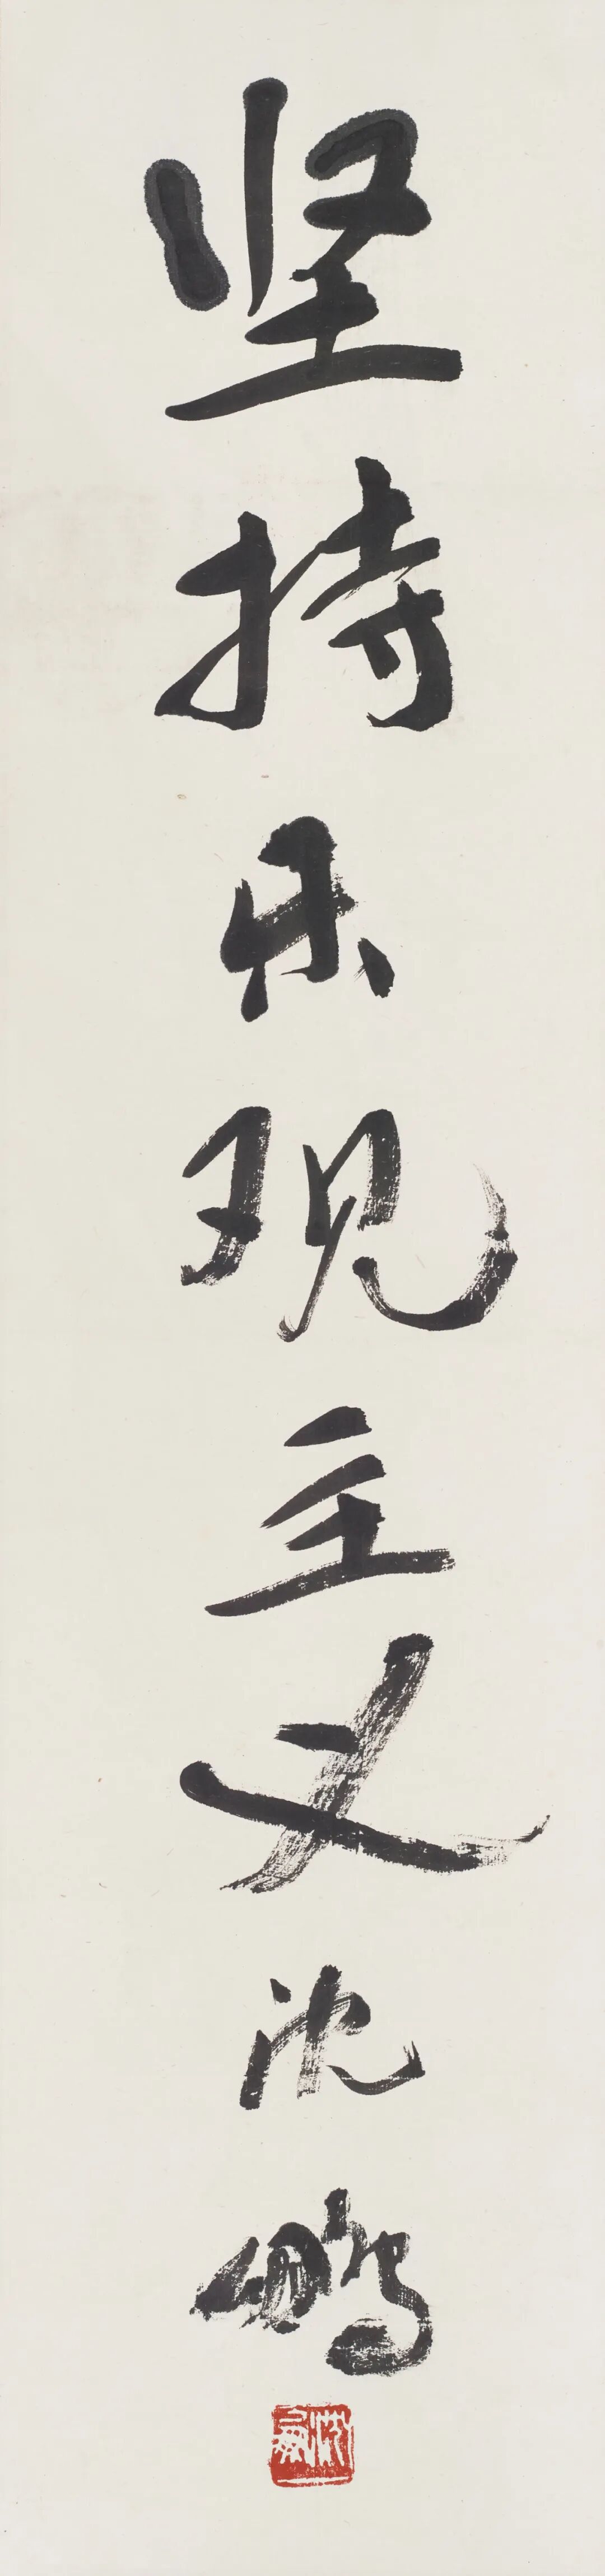 坚持乐观主义沈鹏
沈鹏